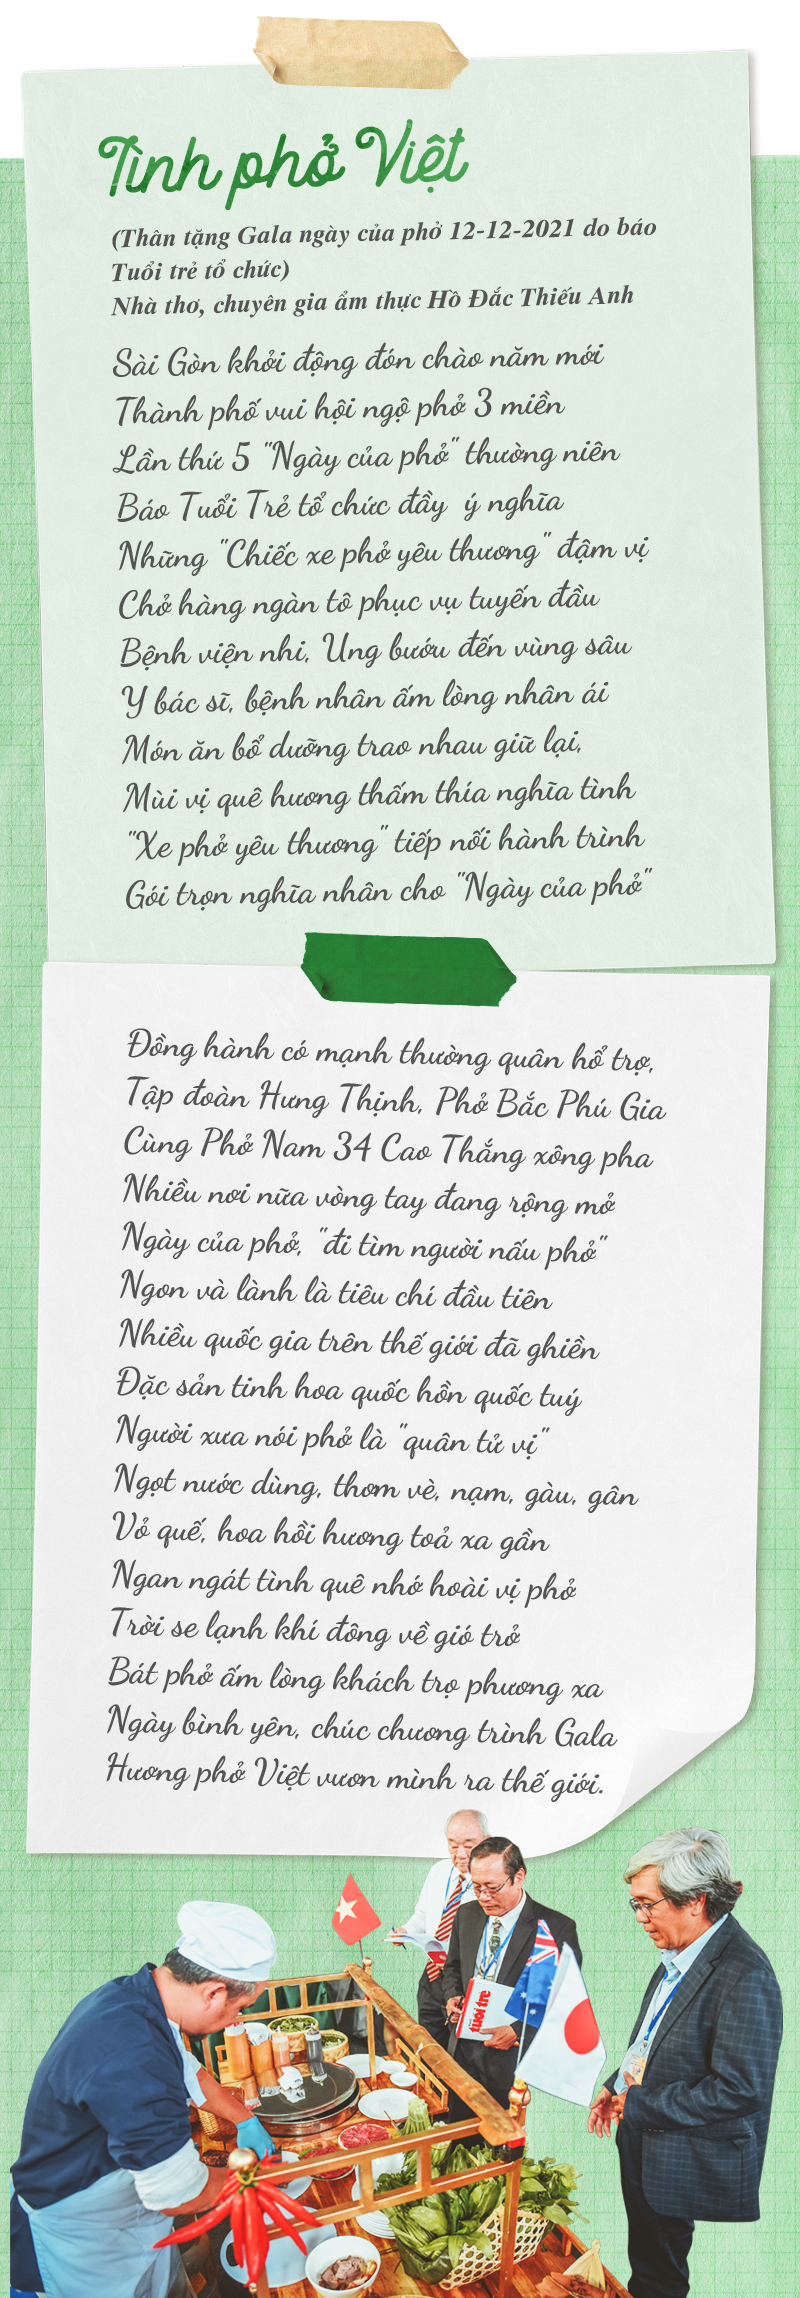 Tình phở Việt
(Thân tặng Gala ngày của phở 12-12-2021 do báo
Tuổi trẻ tổ chức)
Nhà thơ, chuyên gia ẩm thực Hồ Đắc Thiếu Anh
Sài Gòn khởi động đón chào năm mới
Thành phố vui hội ngộ phở 3 miền
Lần thứ 5 "Ngày của phở" thường niên
Báo Tuổi Trẻ tổ chức đầy ý nghĩa
Những "Chiếc xe phở yêu thương" đậm vị
Chở hàng ngàn tô phục vụ tuyến đầu
Bệnh viện nhi, Ung bướu đến vùng sâu
Y bác sĩ, bệnh nhân ấm lòng nhân ái
Món ăn bổ dưỡng trao nhau giữ lại,
Mùi vị quê hương thấm thía nghĩa tình
"Xe phở yêu thương" tiếp nối hành trình
Gói trọn nghĩa nhân cho "Ngày của phở"
Đồng hành có mạnh thường quân hổ trợ,
Tập đoàn Hưng Thịnh, Phở Bắc Phú Gia
Cùng Phở Nam 34 Cao Thắng xông pha
Nhiều nơi nữa vòng tay đang rộng mở
Ngày của phở, "đi tìm người nấu phở"
Ngon và lành là tiêu chí đầu tiên
Nhiều quốc gia trên thế giới đã ghiền
Đặc sản tinh hoa quốc hồn quốc tuý
Người xưa nói phở là "quân tử vị"
Ngọt nước dùng, thơm vè, nạm, gàu, gân
Vỏ quế, hoa hồi hương toả xa gần
Ngan ngát tình quê nhớ hoài vị phở
Trời se lạnh khí đông về gió trở
Bát phở ấm lòng khách trọ phương xa
Ngày bình yên, chúc chương trình Gala
Hương phở Việt vươn mình ra thế giới.
tuổi trẻ